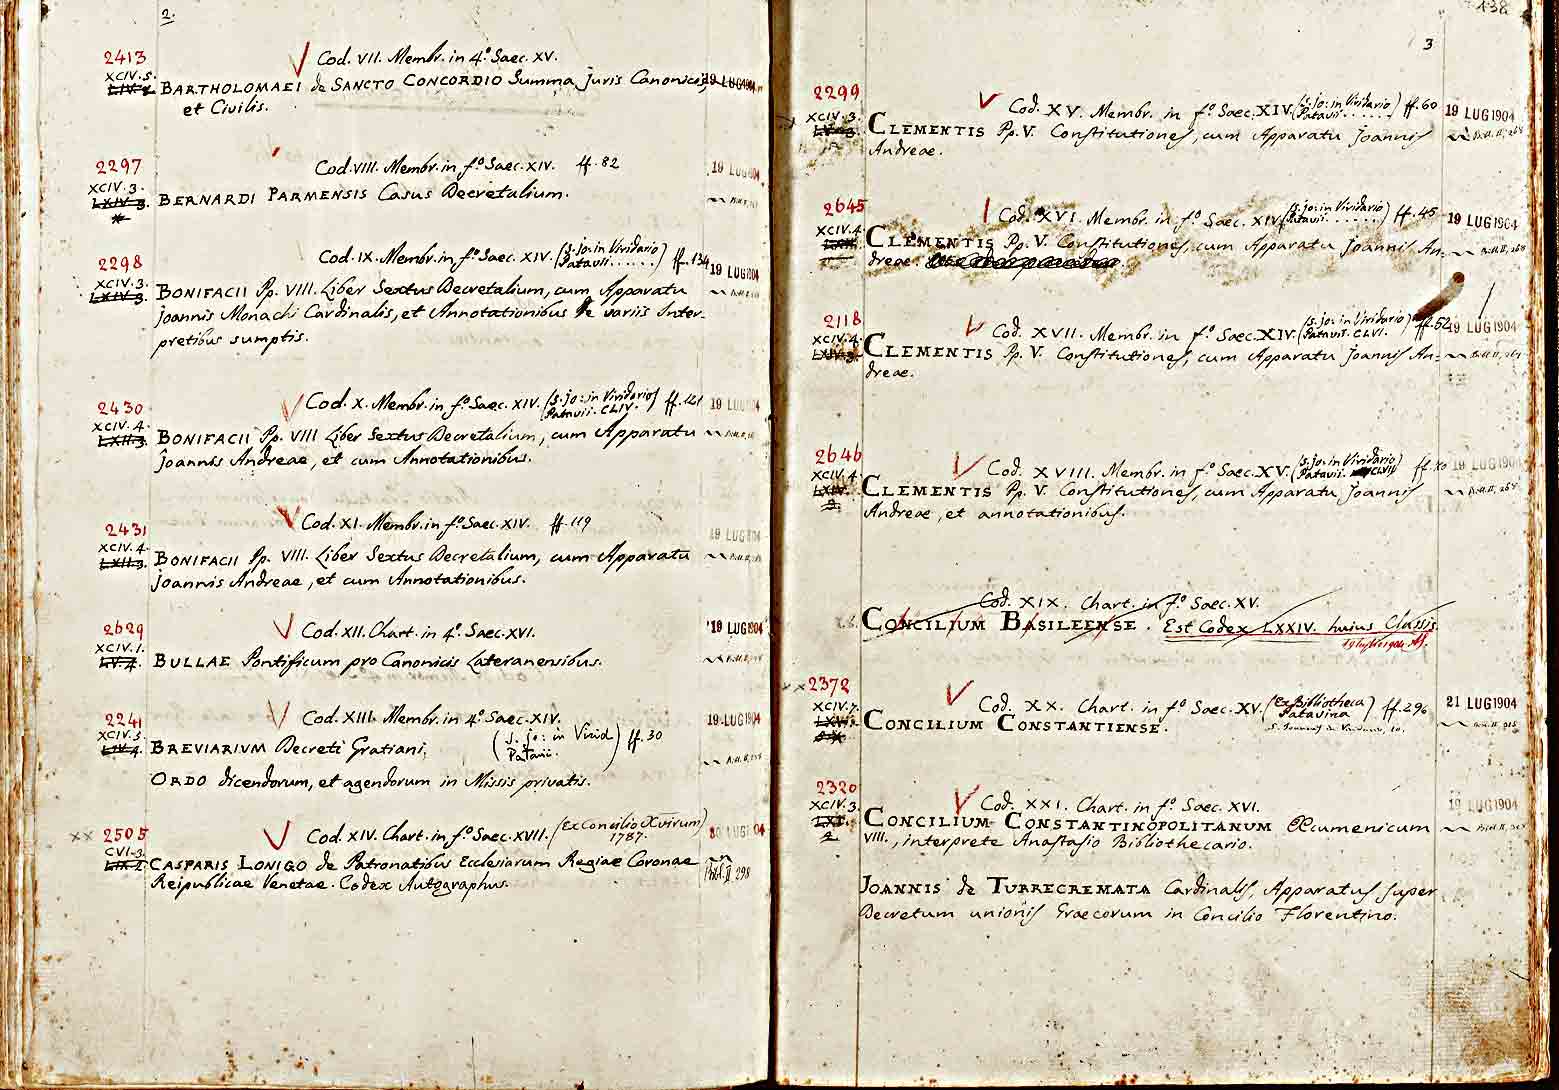 2.
2413 Cod. VII. Membr. in 4.º Saec. XV.
XCIV. 5. BARTHOLOMAEI de SANCTO CONCORDIO Summa Juris Canonici, 19 LUG 1904
et Civilis.
2297 Cod. VIII. Membr. in fº. Saec. XIV. ff. 82 19 LUG 1904
XCIV. 3. BERNARDI PARMENSIS Casus Decretalium.
LXIV. 3.
2298 Cod. IX. Membr. in fº. Saec. XIV. (S. Jo: in Viridario Patavii......) ff. 134 19 LUG 1904
XCIV. 3. BONIFACII Pp. VIII. Liber Sextus Decretalium, cum Apparatu
LXIV. 3. Joannis Monachi Cardinalis, et Annotationibus e variis Inter-
pretibus sumptis.
2430 Cod. X. Membr. in fº. Saec. XIV. (S. Jo: in Viridario Patavii. CLIV.) ff. 121 19 LUG 1904
XCIV. 4. BONIFACII Pp. VIII Liber Sextus Decretalium, cum Apparatu
LXII. 3. Joannis Andreae, et cum Annotationibus.
2431 Cod. XI. Membr. in fº. Saec. XIV. ff. 119 19 LUG 1904
XCIV. 4. BONIFACII Pp. VIII. Liber Sextus Decretalium, cum Apparatu
LXII. 3. Joannis Andreae, et cum Annotationibus.
2629 Cod. XII. Chart. in 4º. Saec. XVI. 19 LUG 1904
XCIV. 1. BULLAE Pontificum pro Canonicis Lateranensibus.
2241 Cod. XIII. Membr. in 4º. Saec. XIV. 19 LUG 1904
XCIV. 5. BREVIARIUM Decreti Gratiani. (S. Jo: in Virid Patavii.) ff. 30
ORDO dicendorum, et agendorum in Missis privatis.
xx 2505 Cod. XIV. Chart. in fº. Saec. XVII. (Ex Concilio Xvirum) 1787. 20 LUG 1904
CVI. 3. CASPARIS LONIGO de Patronatibus Ecclesiarum Regiae Coronae
LIX. 2. Reipublicae Venetae. Codex Autographus. 298
138
3
2299 Cod. XV. Membr. in fº. Saec. XIV. (S. Jo: in Viridario Patavii......) ff. 60 19 LUG 1904
XCIV. 3. CLEMENTIS Pp. V. Constitutiones, cum Apparatu Joannis
Andreae.
2645 Cod. XVI. Membr. in fº. Saec. XIV (S. Jo: in Viridario Patavii.......) ff. 45 19 LUG 1904
XCIV. 4. CLEMENTIS Pp. V. Constitutiones, cum Apparatu Joannis An=
dreae.
2118 Cod. XVII. Membr. in fº. Saec. XIV. (S. Jo: in Viridario Patavii. CLVI.) ff. 52 19 LUG 1904
XCIV. 4. CLEMENTIS Pp. V. Constitutiones, cum Apparatu Joannis An=
LXIV. 3. dreae.
2646 Cod. XVIII. Membr. in fº. Saec. XV. (S. Jo: in Viridario Patavii. CLVII) ff. 19 LUG 1904
XCIV. 4. CLEMENTIS Pp. V. Constitutiones, cum Apparatu Joannis
LXIV. Andreae, et annotationibus.
3.
Cod. XIX. Chart. in fº. Saec. XV.
CONCILIUM BASILEENSE. Est Codex LXXIV. huius Classis.
2372 Cod. XX. Chart. in fº. Saec. XV. (Ex Bibliotheca Patavina) ff. 296 21 LUG 1904
XCIV. 7. CONCILIUM CONSTANTIENSE.
2320 Cod. XXI. Chart. in fº. Saec. XVI. 19 LUG 1904
XCIV. 3. CONCILIUM CONSTANTINOPOLITANUM Œcumenicum
2 VIII., interprete Anastasio Bibliothecario.
JOANNIS de TURRECREMATA Cardinalis, Apparatus super
Decretum unionis Graecorum in Concilio Florentino.